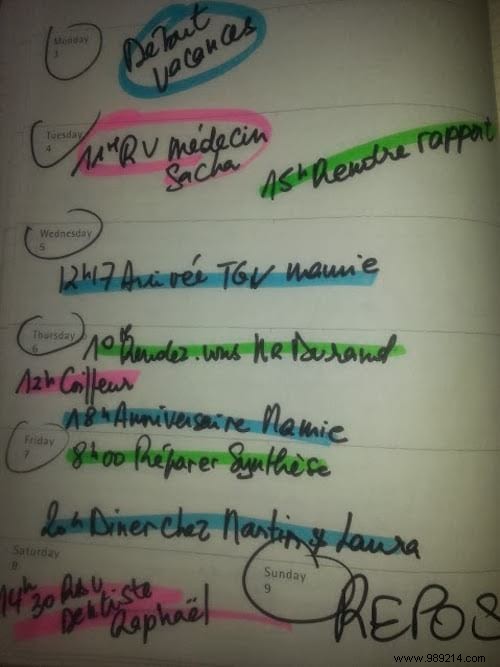 Monday
3
Début
vacances
Tuesday
4
11H RV médecin
Sacha
15h Rendre rapport
Wednesday
5
12h17 Arrivée TGV mamie
Thursday
6
10h Rendez-vous Me Durand
12h Coiffeur
18h Anniversaire Mamie
Friday
7
8h00 Préparer Synthèse
20h Diner chez Martin & Laura
Saturday
8
14h30 RDV
Dentiste
Raphaël
Sunday
9
REPOS
www.989214.com